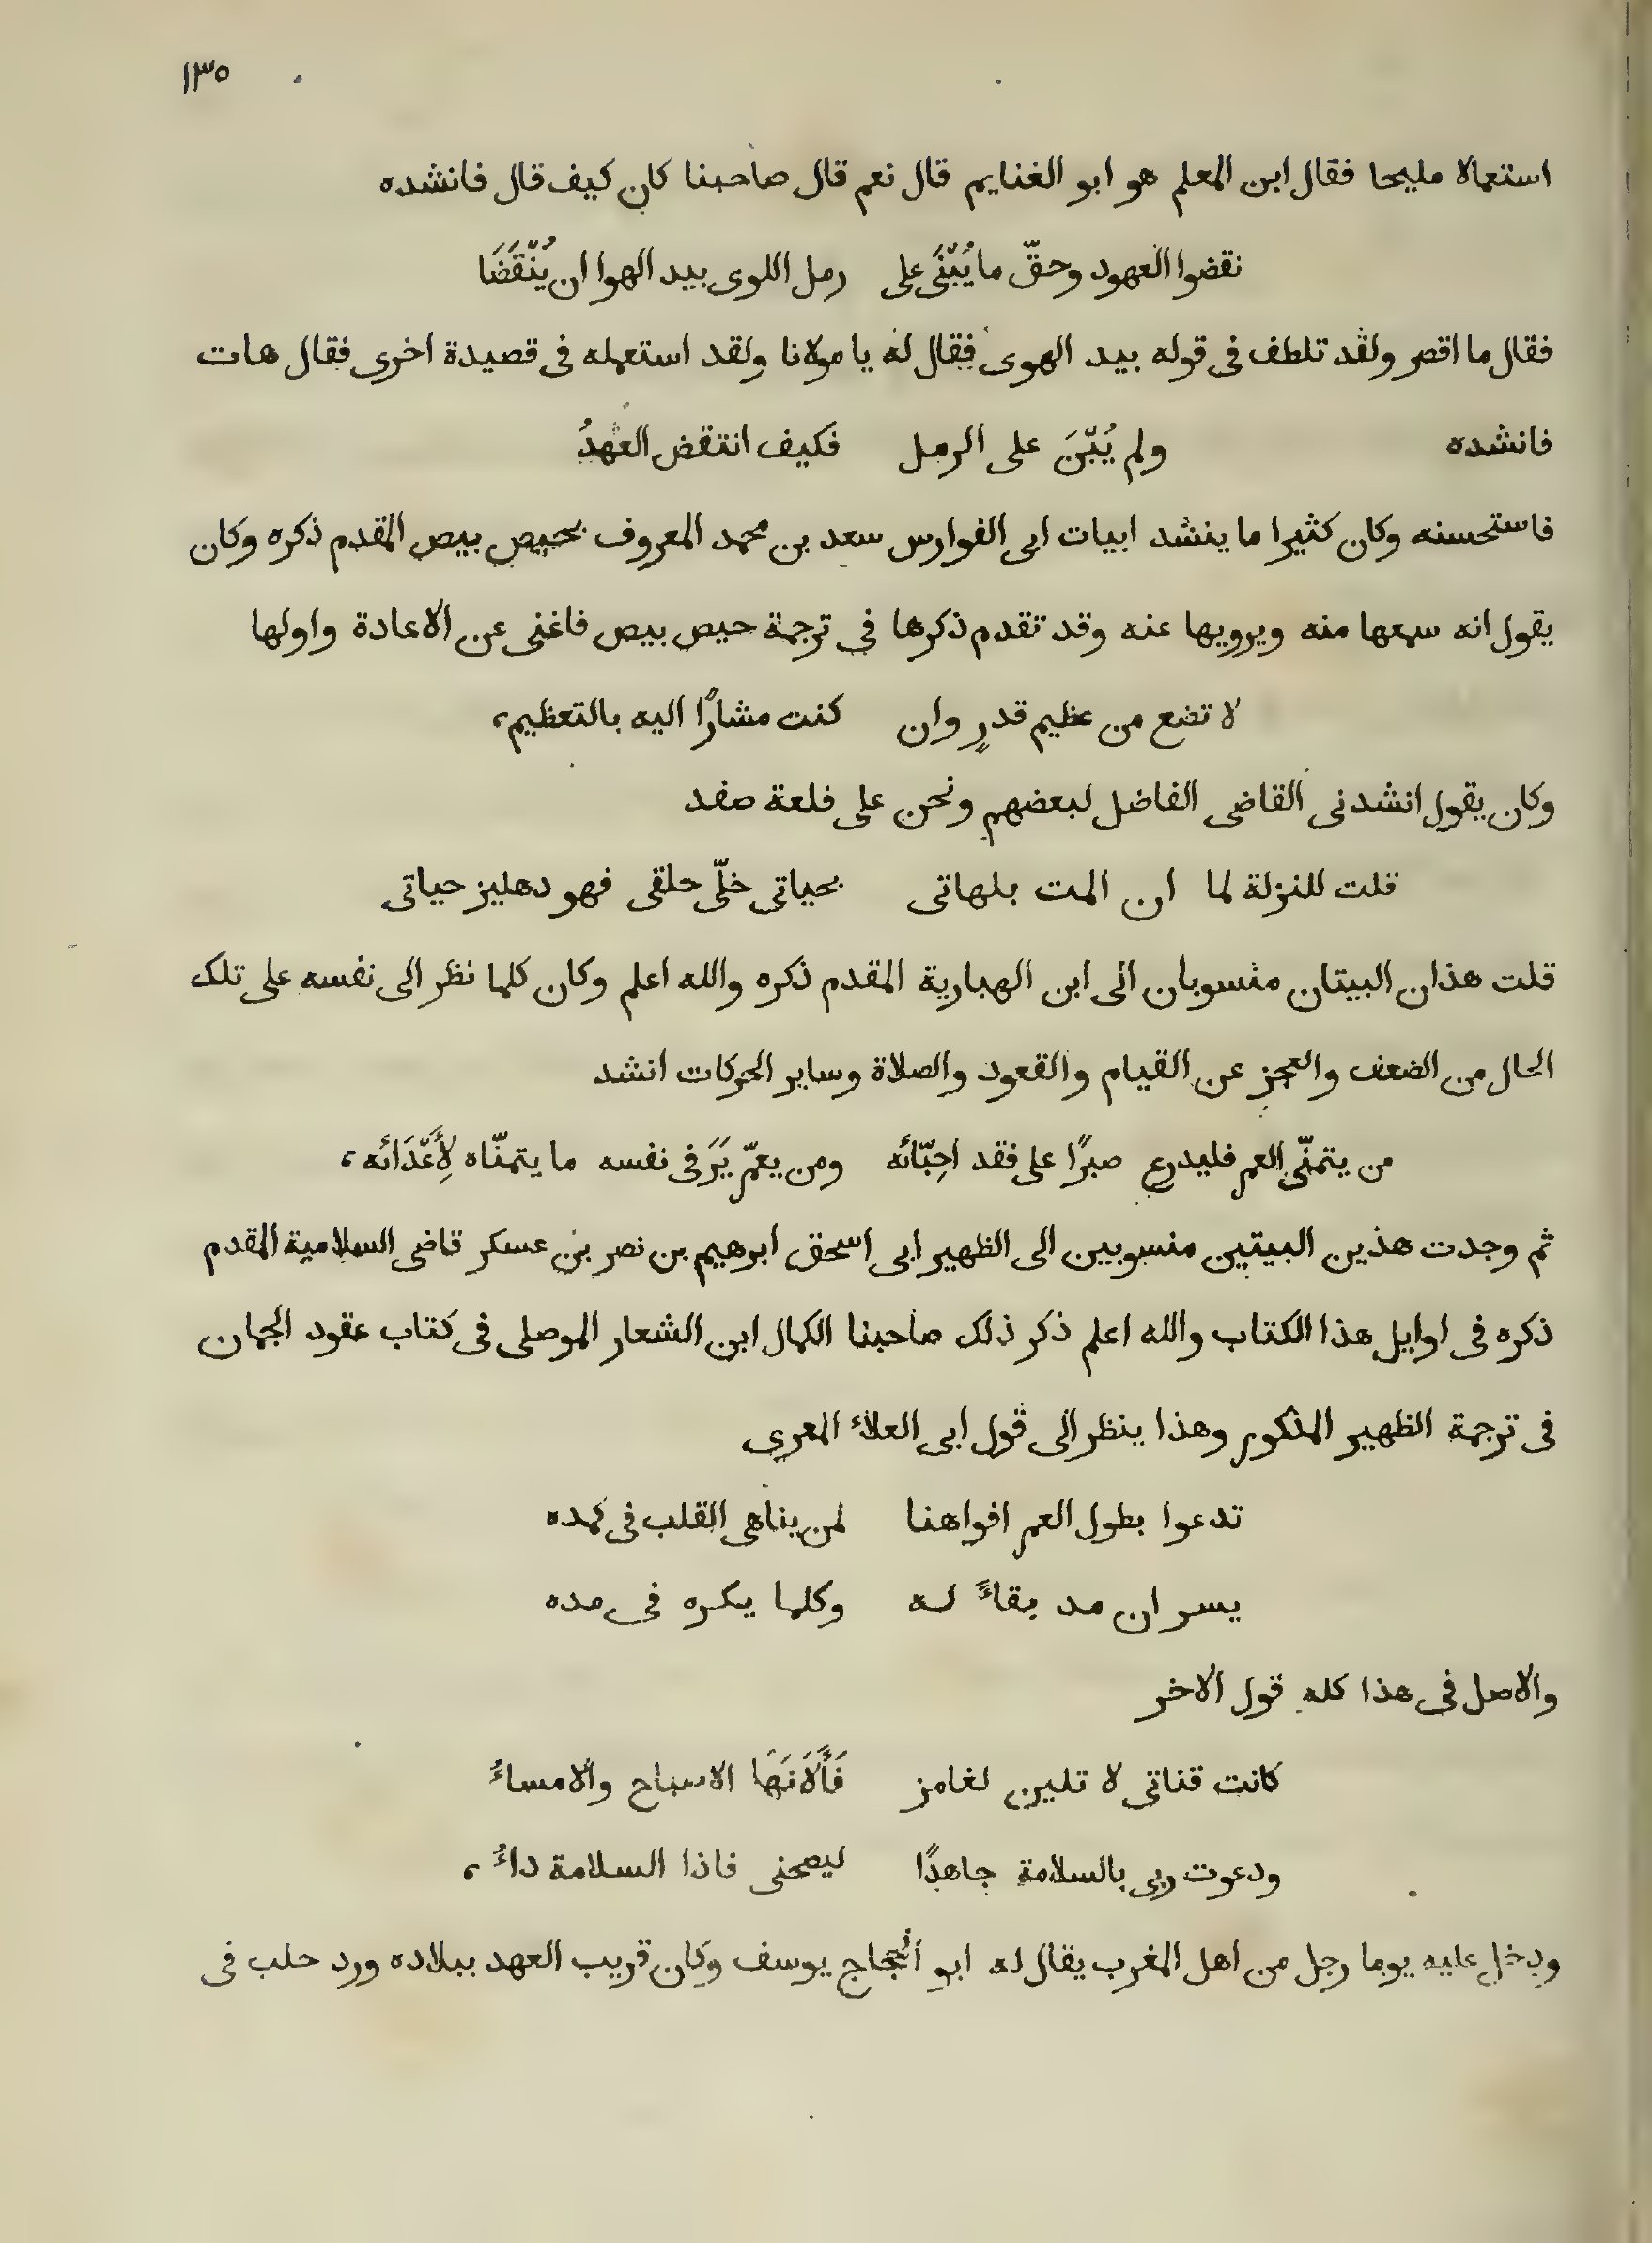 ١٣٥
استعمالا مليحا فقال ابن المعلم هو ابو الغنايم قال نعم قال صاحبنا كان كيف قال فانشده
نقضوا العهود وحقّ ما يُبْنَى على رمل اللوى بيد الهوا ان يُنْقَضَا
فقال ما اقصر ولقد تلطف فى قوله بيد الهوى فقال له يا مولانا ولقد استعمله فى قصيدة اخرى فقال هات
فانشده ولم يُبْنَ على الرمل فكيف انتقض العهدُ
فاستحسنه وكان كثيرا ما ينشد ابيات ابى الفوارس سعد بن محمد المعروف بحيص بيص المقدم ذكره وكان
يقول انه سمعها منه ويرويها عنه وقد تقدم ذكرها فى ترجمة حيص بيص فاغنى عن الاعادة واولها
لا تضع من عظيم قدرٍ وان كنت مشارًا اليه بالتعظيم،
وكان يقول انشدنى القاضى الفاضل لبعضهم ونحن على قلعة صفد
قلت للنزلة لما ان المت بلهاتى بحياتى خلّى حلقى فهو دهليز حياتى
قلت هذان البيتان منسوبان الى ابن الهبارية المقدم ذكره والله اعلم وكان كلما نظر الى نفسه على تلك
الحال من الضعف والعجز عن القيام والقعود والصلاة وساير الحركات انشد
من يتمنّى العمر فليدرع صبرًا على فقد احِبّائه ومن يعمّر يَرَ فى نفسه ما يتمنّاه لِأَعْدَائه،
ثم وجدت هذين البيتين منسوبين الى الظهير ابى اسحق ابرهيم بن نصر بن عسكر قاضى السلامية المقدم
ذكره فى اوايل هذا الكتاب والله اعلم ذكر ذلك صاحبنا الكمال ابن الشعار الموصلى فى كتاب عقود الجمان
فى ترجمة الظهير المذكور وهذا ينظر الى قول ابى العلاء المعرى
تدعوا بطول العمر افواهنا لمن يناهى القلب فى كمده
يسر ان مد بقاءً له وكلما يكره فى مده
والاصل فى هذا كله قول الاخر
كانت قناتى لا تلين لغامز فَأَلَانَهَا الاصباح والامساءُ
ودعوت ربى بالسلامة جاهدًا ليصحنى فاذا السلامة داءُ،
ودخل عليه يوما رجل من اهل المغرب يقال له ابو الحجاج يوسف وكان قريب العهد ببلاده ورد حلب فى